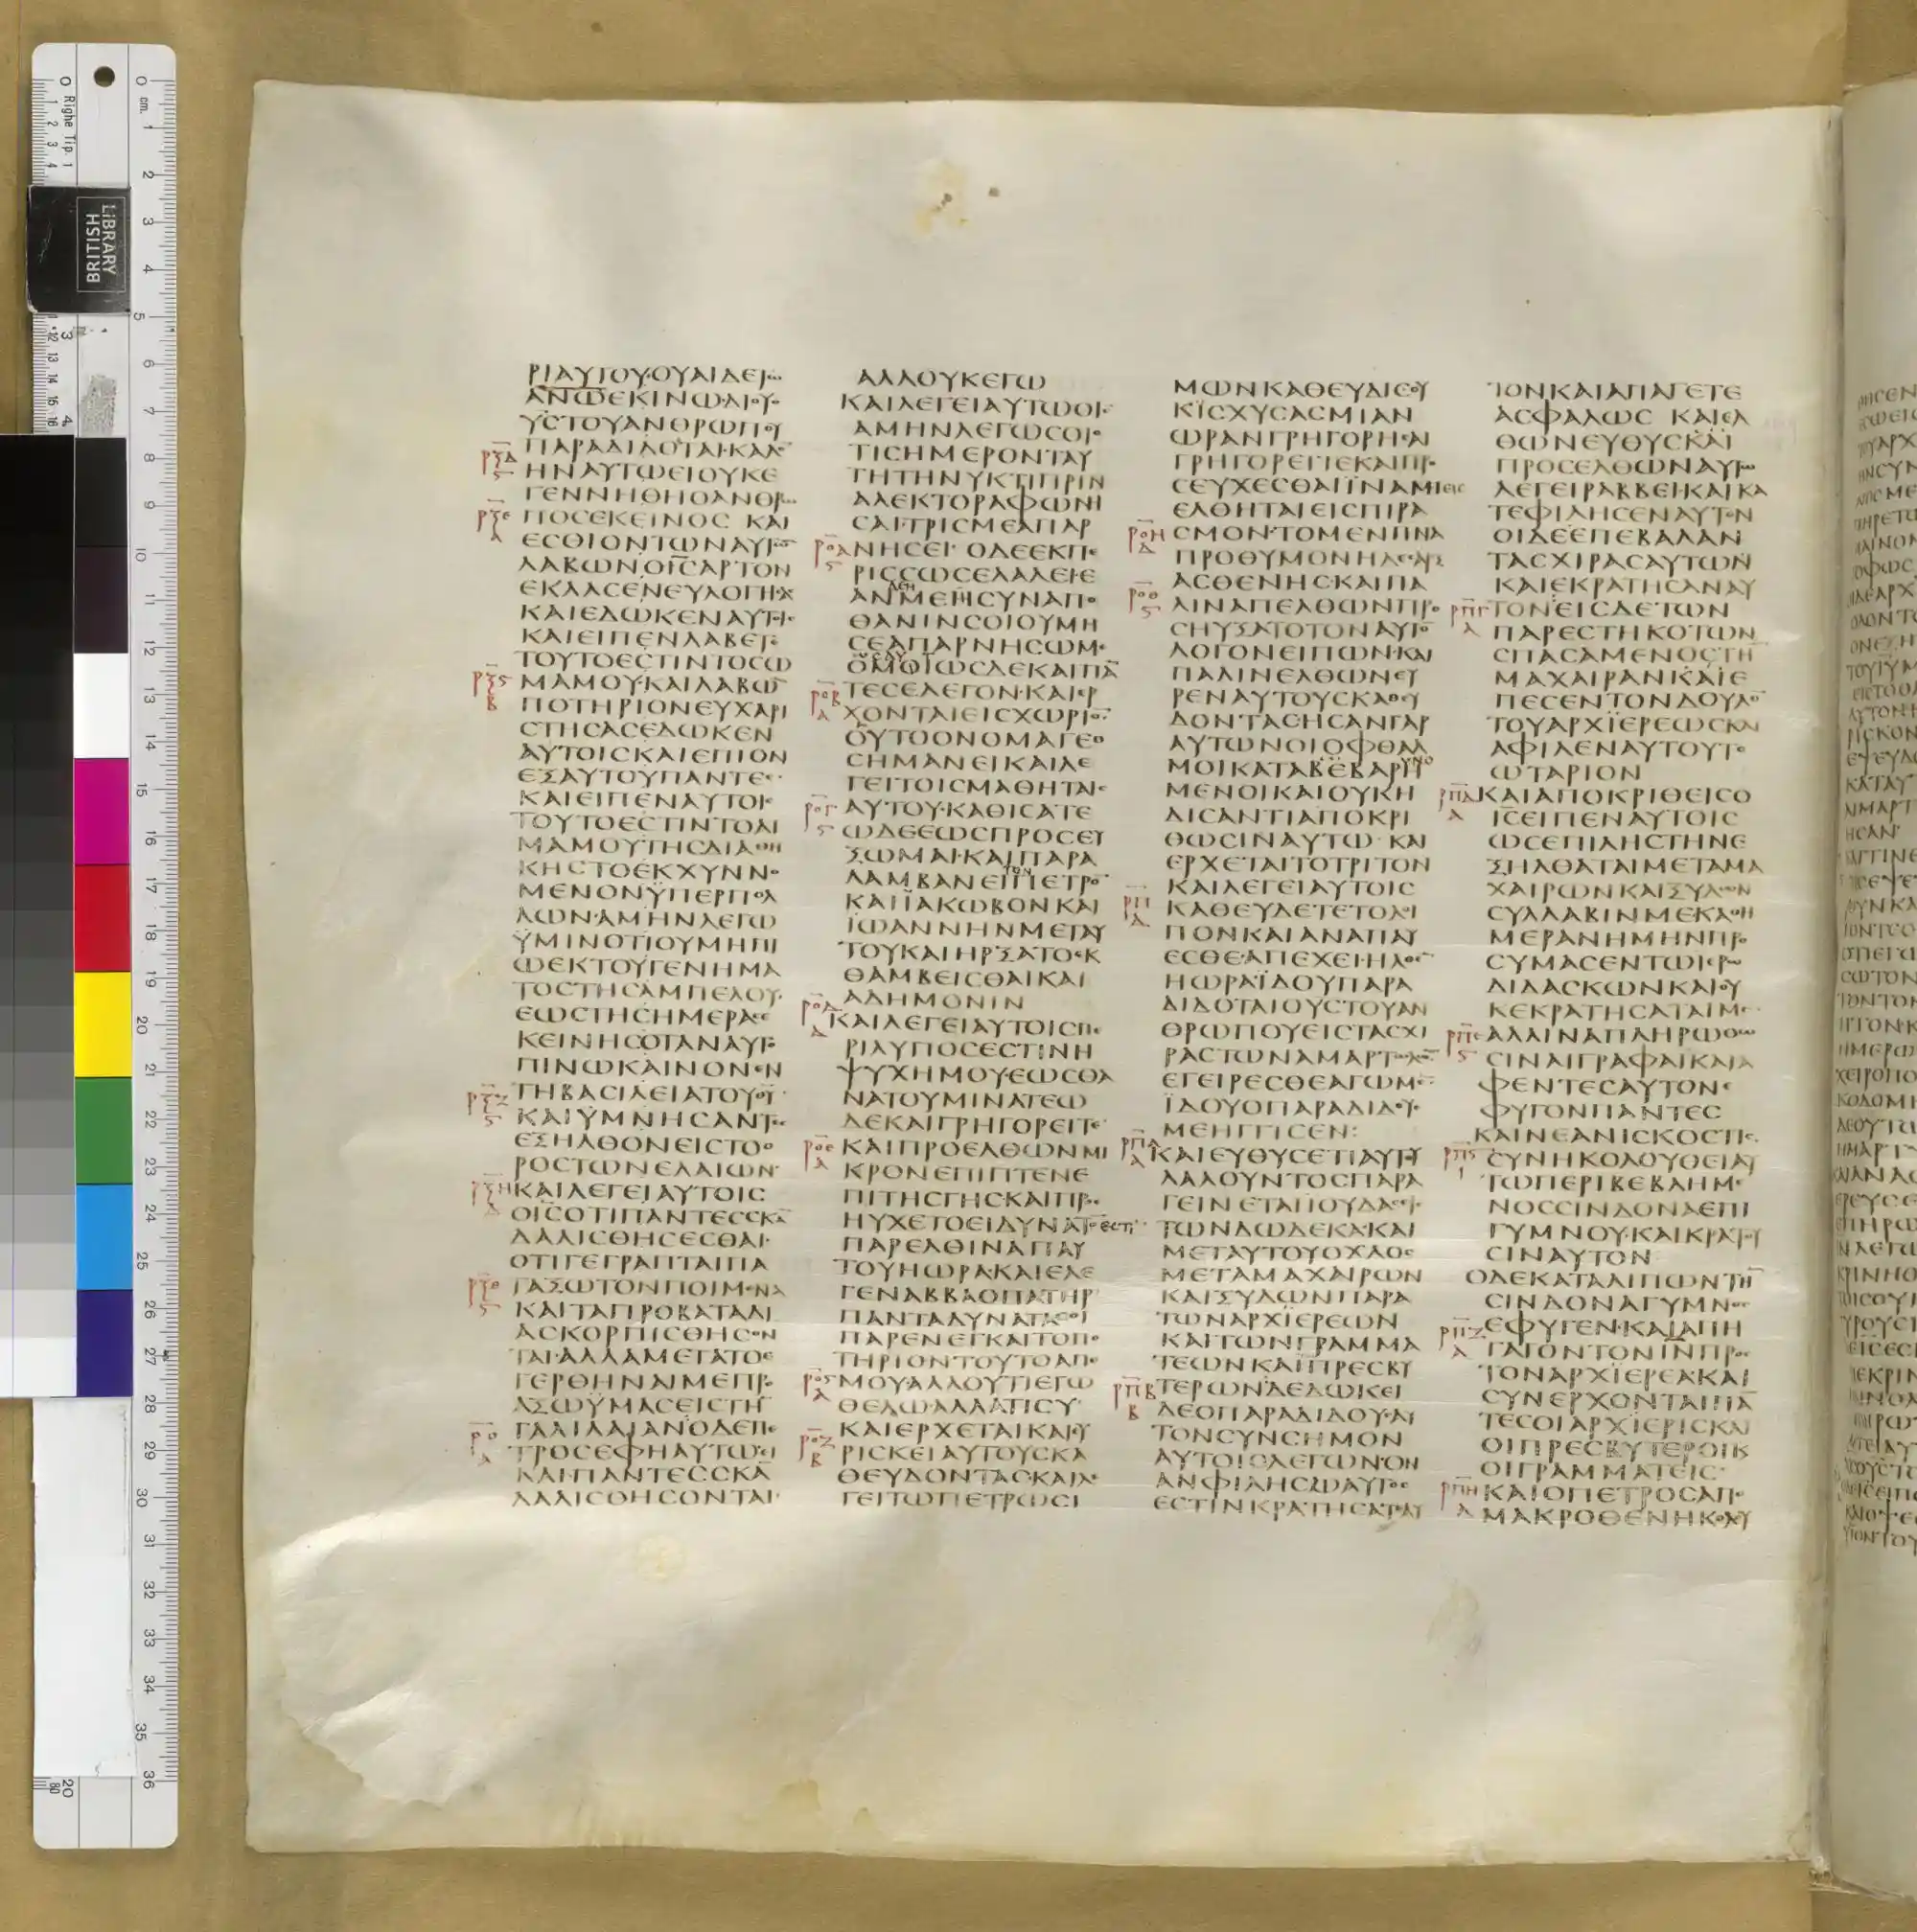 ΡΙΑΥΤΟΥ·ΟΥΑΙΔΕΤΩ
ΑΝΩΕΚΙΝΩ·ΔΙΟΥ·
ΥΣΤΟΥΑΝΘΡΩΠΟΥ
ΠΑΡΑΔΙΔΟΤΑΙ·ΚΑΛΟ
ΗΝΑΥΤΩΕΙΟΥΚΕ
ΓΕΝΝΗΘΗΟΑΝΘΡΩ
ΠΟΣΕΚΕΙΝΟΣ ΚΑΙ
ΕΣΘΙΟΝΤΩΝΑΥΤΩ
ΛΑΒΩΝΟΙΣΑΡΤΟΝ
ΕΚΛΑΣΕΝΕΥΛΟΓΗΣΑ
ΚΑΙΕΔΩΚΕΝΑΥΤΟΙΣ
ΚΑΙΕΙΠΕΝΛΑΒΕΤΕ
ΤΟΥΤΟΕΣΤΙΝΤΟΣΩ
ΜΑΜΟΥ·ΚΑΙΛΑΒΩ
ΠΟΤΗΡΙΟΝΕΥΧΑΡΙ
ΣΤΗΣΑΣΕΔΩΚΕΝ
ΑΥΤΟΙΣΚΑΙΕΠΙΟΝ
ΕΞΑΥΤΟΥΠΑΝΤΕΣ·
ΚΑΙΕΙΠΕΝΑΥΤΟΙΣ
ΤΟΥΤΟΕΣΤΙΝΤΟΑΙ
ΜΑΜΟΥΤΗΣΔΙΑΘΗ
ΚΗΣΤΟΕΚΧΥΝΝΟ
ΜΕΝΟΝΫΠΕΡΠΟΛ
ΛΩΝ·ΑΜΗΝΛΕΓΩ
ΫΜΙΝΟΤΙΟΥΜΗΠΙ
ΩΕΚΤΟΥΓΕΝΗΜΑ
ΤΟΣΤΗΣΑΜΠΕΛΟΥ·
ΕΩΣΤΗΣΗΜΕΡΑΣΕ
ΚΕΙΝΗΣΟΤΑΝΑΥΤΟ
ΠΙΝΩΚΑΙΝΟΝΕΝ
ΤΗΒΑΣΙΛΕΙΑΤΟΥΘΥ
ΚΑΙΫΜΝΗΣΑΝΤΕΣ
ΕΞΗΛΘΟΝΕΙΣΤΟΟ
ΡΟΣΤΩΝΕΛΑΙΩΝ·
ΚΑΙΛΕΓΕΙΑΥΤΟΙΣ
ΟΙΣΟΤΙΠΑΝΤΕΣΣΚΑ
ΔΑΛΙΣΘΗΣΕΣΘΑΙ·
ΟΤΙΓΕΓΡΑΠΤΑΙΠΑ
ΤΑΞΩΤΟΝΠΟΙΜΕΝΑ
ΚΑΙΤΑΠΡΟΒΑΤΑΔΙ
ΑΣΚΟΡΠΙΣΘΗΣΟΝ
ΤΑΙ·ΑΛΛΑΜΕΤΑΤΟΕ
ΓΕΡΘΗΝΑΙΜΕΠΡΟ
ΑΞΩΫΜΑΣΕΙΣΤΗ
ΓΑΛΙΛΑΙΑΝ·ΟΔΕΠΕ
ΤΡΟΣΕΦΗΑΥΤΩΕΙ
ΚΑΙΠΑΝΤΕΣΣΚΑ
ΔΑΛΙΣΘΗΣΟΝΤΑΙ·
ΑΛΛΟΥΚΕΓΩ
ΚΑΙΛΕΓΕΙΑΥΤΩΟΙΣ
ΑΜΗΝΛΕΓΩΣΟΙΟ
ΤΙΣΗΜΕΡΟΝΤΑΥ
ΤΗΤΗΝΥΚΤΙΠΡΙΝ
ΑΛΕΚΤΟΡΑΦΩΝΗ
ΣΑΙ·ΤΡΙΣΜΕΑΠΑΡ
ΝΗΣΕΙ· ΟΔΕΕΚΠΕ
ΡΙΣΣΩΣΕΛΑΛΕΙΕ
ΑΝΜΕΗΣΥΝΑΠΟ
ΘΑΝΙΝΣΟΙΟΥΜΗ
ΣΕΑΠΑΡΝΗΣΩΜΕ
ΟΜΟΙΩΣΔΕΚΑΙΠΑ
ΤΕΣΕΛΕΓΟΝ·ΚΑΙΕΡ
ΧΟΝΤΑΙΕΙΣΧΩΡΙΟ
ΟΥΤΟΟΝΟΜΑΓΕΘ
ΣΗΜΑΝΕΙΚΑΙΛΕ
ΓΕΙΤΟΙΣΜΑΘΗΤΑΙΣ
ΑΥΤΟΥ·ΚΑΘΙΣΑΤΕ
ΩΔΕΕΩΣΠΡΟΣΕΥ
ΞΩΜΑΙ·ΚΑΙΠΑΡΑ
ΛΑΜΒΑΝΕΙΠΕΤΡΟ
ΚΑΙΪΑΚΩΒΟΝΚΑΙ
ΪΩΑΝΝΗΝΜΕΤΑΥ
ΤΟΥΚΑΙΗΡΞΑΤΟΕΚ
ΘΑΜΒΕΙΣΘΑΙΚΑΙ
ΑΔΗΜΟΝΙΝ
ΚΑΙΛΕΓΕΙΑΥΤΟΙΣΠΕ
ΡΙΛΥΠΟΣΕΣΤΙΝΗ
ΨΥΧΗΜΟΥ·ΕΩΣΘΑ
ΝΑΤΟΥΜΙΝΑΤΕΩ
ΔΕΚΑΙΓΡΗΓΟΡΕΙΤΕ·
ΚΑΙΠΡΟΕΛΘΩΝΜΙ
ΚΡΟΝΕΠΙΠΤΕΝΕ
ΠΙΤΗΣΓΗΣΚΑΙΠΡΟΣ
ΗΥΧΕΤΟΕΙΔΥΝΑΤΟΕΣΤΙ
ΠΑΡΕΛΘΙΝΑΠΑΥ
ΤΟΥΗΩΡΑ·ΚΑΙΕΛΕ
ΓΕΝΑΒΒΑΟΠΑΤΗΡ
ΠΑΝΤΑΔΥΝΑΤΑΣΟΙ
ΠΑΡΕΝΕΓΚΑΙΤΟΠΟ
ΤΗΡΙΟΝΤΟΥΤΟΑΠΕ
ΜΟΥ·ΑΛΛΟΥΤΙΕΓΩ
ΘΕΛΩ·ΑΛΛΑΤΙΣΥ·
ΚΑΙΕΡΧΕΤΑΙΚΑΙΕΥ
ΡΙΣΚΕΙΑΥΤΟΥΣΚΑ
ΘΕΥΔΟΝΤΑΣ·ΚΑΙΛΕ
ΓΕΙΤΩΠΕΤΡΩΣΙ
ΜΩΝΚΑΘΕΥΔΙΣΟΥ
ΚΪΣΧΥΣΑΣΜΙΑΝ
ΩΡΑΝΓΡΗΓΟΡΗΣΑΙ
ΓΡΗΓΟΡΕΙΤΕΚΑΙΠΡΟ
ΣΕΥΧΕΣΘΑΙΪΝΑΜΗΕΙΣ
ΕΛΘΗΤΑΙΕΙΣΠΙΡΑ
ΣΜΟΝ·ΤΟΜΕΝΠΝΑ
ΠΡΟΘΥΜΟΝΗΔΕΣΑΡΞ
ΑΣΘΕΝΗΣΚΑΙΠΑ
ΛΙΝΑΠΕΛΘΩΝΠΡΟ
ΣΗΥΞΑΤΟΤΟΝΑΥΤΟ
ΛΟΓΟΝΕΙΠΩΝ·ΚΑΙ
ΠΑΛΙΝΕΛΘΩΝΕΥ
ΡΕΝΑΥΤΟΥΣΚΑΘΕΥ
ΔΟΝΤΑΣΗΣΑΝΓΑΡ
ΑΥΤΩΝΟΙΟΦΘΑΛ
ΜΟΙΚΑΤΑΒΕΒΑΡΗ
ΜΕΝΟΙΚΑΙΟΥΚΗ
ΔΙΣΑΝΤΙΑΠΟΚΡΙ
ΘΩΣΙΝΑΥΤΩ· ΚΑΙ
ΕΡΧΕΤΑΙΤΟΤΡΙΤΟΝ
ΚΑΙΛΕΓΕΙΑΥΤΟΙΣ
ΚΑΘΕΥΔΕΤΕΤΟΛΟΙ
ΠΟΝΚΑΙΑΝΑΠΑΥ
ΕΣΘΕ·ΑΠΕΧΕΙ·ΗΛΘΕ
ΗΩΡΑΪΔΟΥΠΑΡΑ
ΔΙΔΟΤΑΙΟΥΣΤΟΥΑΝ
ΘΡΩΠΟΥΕΙΣΤΑΣΧΙ
ΡΑΣΤΩΝΑΜΑΡΤΩΛΩ
ΕΓΕΙΡΕΣΘΕΑΓΩΜΕ
ΪΔΟΥΟΠΑΡΑΔΙΔΟΥ·
ΜΕΗΓΓΙΣΕΝ:
ΚΑΙΕΥΘΥΣΕΤΙΑΥΤΟΥ
ΛΑΛΟΥΝΤΟΣΠΑΡΑ
ΓΕΙΝΕΤΑΙΪΟΥΔΑΣΕΙΣ
ΤΩΝΔΩΔΕΚΑ·ΚΑΙ
ΜΕΤΑΥΤΟΥΟΧΛΟΣ
ΜΕΤΑΜΑΧΑΙΡΩΝ
ΚΑΙΞΥΛΩΝΠΑΡΑ
ΤΩΝΑΡΧΪΕΡΕΩΝ
ΚΑΙΤΩΝΓΡΑΜΜΑ
ΤΕΩΝΚΑΙΠΡΕΣΒΥ
ΤΕΡΩΝ·ΔΕΔΩΚΕΙ
ΔΕΟΠΑΡΑΔΙΔΟΥΣΑΥ
ΤΟΝΣΥΝΣΗΜΟΝ
ΑΥΤΟΙΣΛΕΓΩΝ·ΟΝ
ΑΝΦΙΛΗΣΩΑΥΤΟΣ
ΕΣΤΙΝΚΡΑΤΗΣΑΤΑΙΑΥ
ΤΟΝΚΑΙΑΠΑΓΕΤΕ
ΑΣΦΑΛΩΣ ΚΑΙΕΛ
ΘΩΝΕΥΘΥΣΚΑΙ
ΠΡΟΣΕΛΘΩΝΑΥΤΩ
ΛΕΓΕΙΡΑΒΒΕΙ·ΚΑΙΚΑ
ΤΕΦΙΛΗΣΕΝΑΥΤΟΝ
ΟΙΔΕΕΠΕΒΑΛΑΝ
ΤΑΣΧΙΡΑΣΑΥΤΩΝ
ΚΑΙΕΚΡΑΤΗΣΑΝΑΥ
ΤΟΝ·ΕΙΣΔΕΤΩΝ
ΠΑΡΕΣΤΗΚΟΤΩΝ
ΣΠΑΣΑΜΕΝΟΣΤΗ
ΜΑΧΑΙΡΑΝΚΑΙΕ
ΠΕΣΕΝΤΟΝΔΟΥΛΟ
ΤΟΥΑΡΧΪΕΡΕΩΣΚΑΙ
ΑΦΙΛΕΝΑΥΤΟΥΤΟ
ΩΤΑΡΙΟΝ
ΚΑΙΑΠΟΚΡΙΘΕΙΣΟ
ΙΣΕΙΠΕΝΑΥΤΟΙΣ
ΩΣΕΠΙΛΗΣΤΗΝΕ
ΞΗΛΘΑΤΑΙΜΕΤΑΜΑ
ΧΑΙΡΩΝΚΑΙΞΥΛΩΝ
ΣΥΛΛΑΒΙΝΜΕΚΑΘΗ
ΜΕΡΑΝΗΜΗΝΠΡΟ
ΣΥΜΑΣΕΝΤΩΙΕΡΩ
ΔΙΔΑΣΚΩΝΚΑΙΟΥ
ΚΕΚΡΑΤΗΣΑΤΑΙΜΕ·
ΑΛΛΙΝΑΠΛΗΡΩΘΩ
ΣΙΝΑΙΓΡΑΦΑΙΚΑΙΑ
ΦΕΝΤΕΣΑΥΤΟΝΕ
ΦΥΓΟΝΠΑΝΤΕΣ
ΚΑΙΝΕΑΝΙΣΚΟΣΤΙΣ
ΣΥΝΗΚΟΛΟΥΘΕΙΑΥ
ΤΩΠΕΡΙΒΕΒΛΗΜΕ
ΝΟΣΣΙΝΔΟΝΑΕΠΙ
ΓΥΜΝΟΥ·ΚΑΙΚΡΑΤΟΥ
ΣΙΝΑΥΤΟΝ
ΟΔΕΚΑΤΑΛΙΠΩΝΤΗ
ΣΙΝΔΟΝΑΓΥΜΝΟΣ
ΕΦΥΓΕΝ·ΚΑΙΑΠΗ
ΓΑΓΟΝΤΟΝΙΝΠΡΟΣ
ΤΟΝΑΡΧΪΕΡΕΑΚΑΙ
ΣΥΝΕΡΧΟΝΤΑΙΠΑ
ΤΕΣΟΙΑΡΧΪΕΡΙΣΚΑΙ
ΟΙΠΡΕΣΒΥΤΕΡΟΙΚ
ΟΙΓΡΑΜΜΑΤΕΙΣ·
ΚΑΙΟΠΕΤΡΟΣΑΠΟ
ΜΑΚΡΟΘΕΝΗΚΟΛΟΥ
BRITISH
LIBRARY